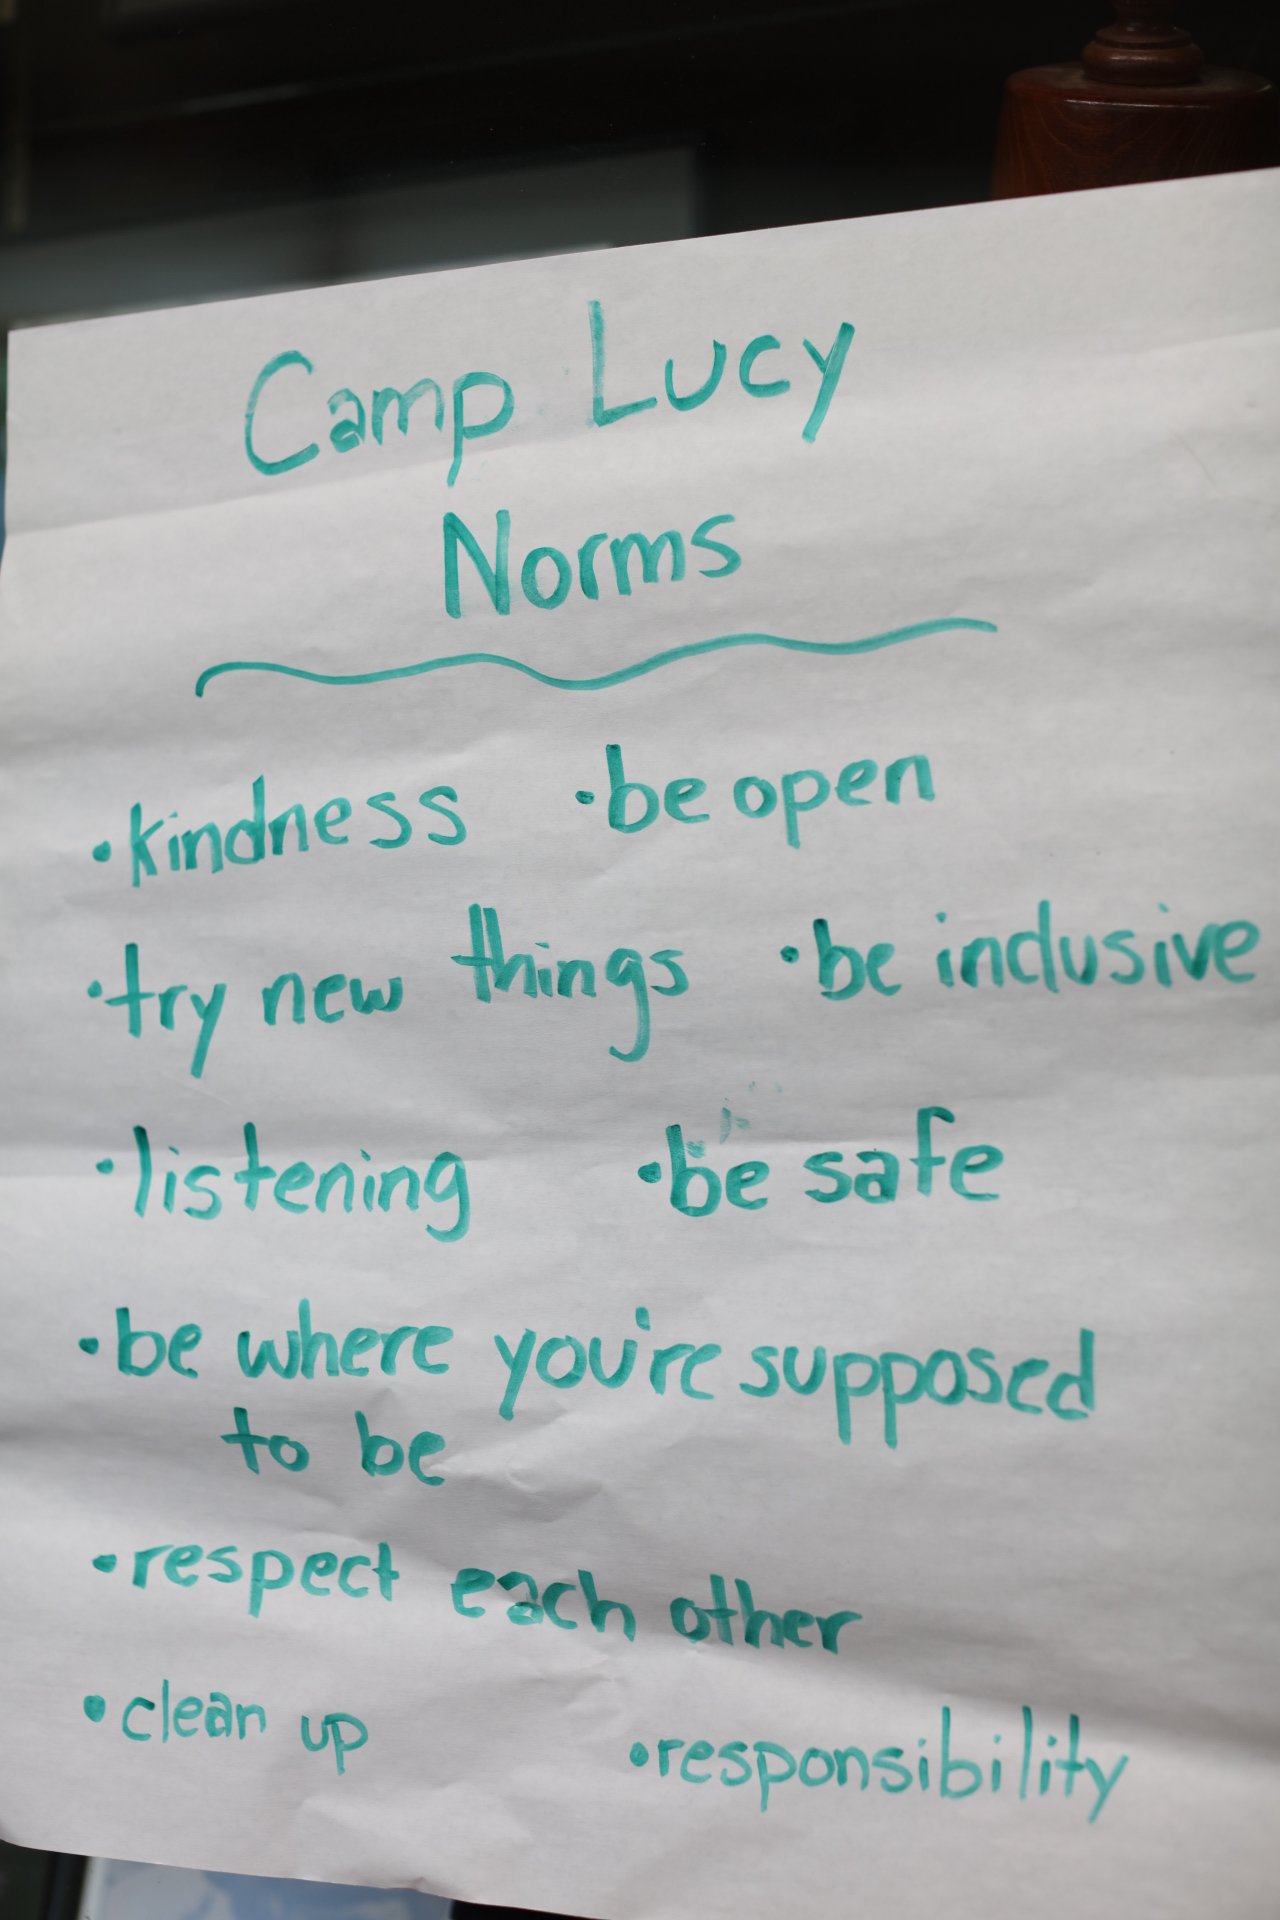 Camp Lucy
Norms
•kindness •be open
•try new things •be inclusive
•listening •be safe
•be where you're supposed
to be
•respect each other
•clean up •responsibility